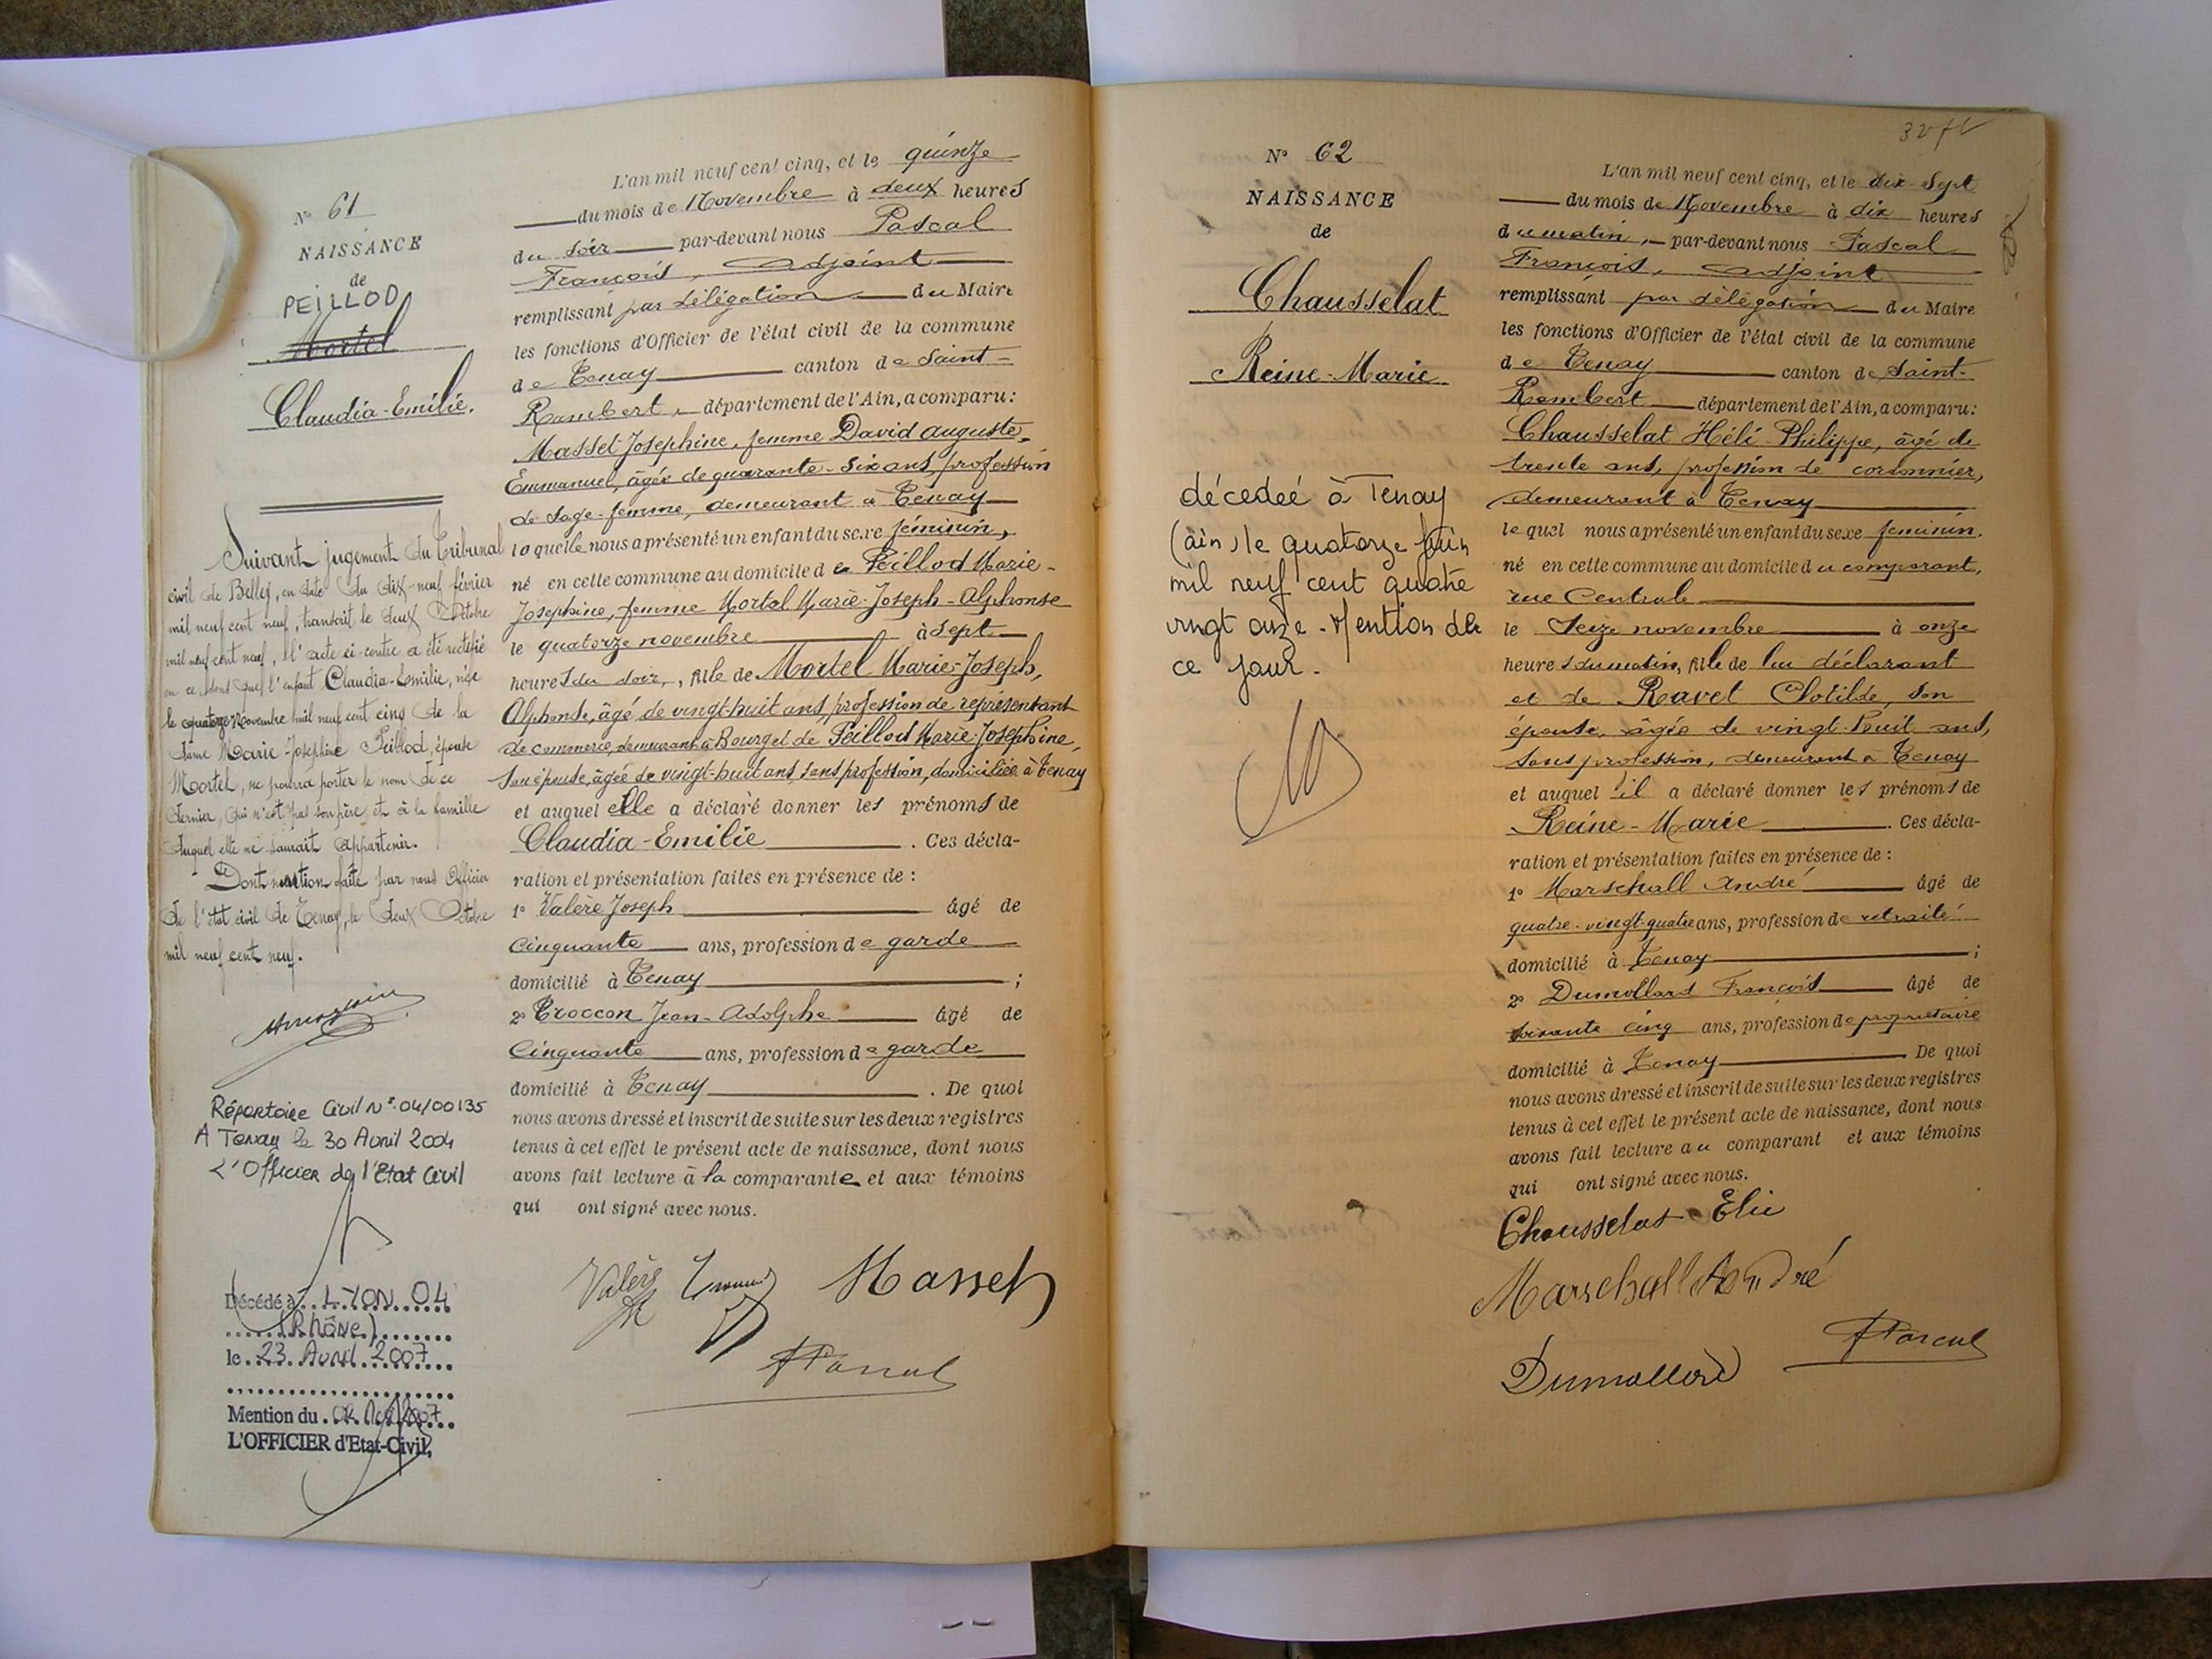 N° 61
NAISSANCE
de
PEILLOD
Mortel
Claudia-Emilie.
Suivant jugement du Tribunal
civil de Belley, en date du dix-neuf février
mil neuf cent neuf, transcrit le deux Octobre
mil neuf cent neuf, l'acte ci-contre a été rectifié
en ce sens que l'enfant Claudia-Emilie, née
le quatorze Novembre mil neuf cent cinq de la
dame Marie-Josephine Peillod, épouse
Mortel, ne pourra porter le nom de ce
dernier, qui n'est pas son père, et à la famille
duquel elle ne saurait appartenir.
Dont mention faite par nous Officier
de l'état civil de Tenay, le deux Octobre
mil neuf cent neuf.
Répertoire Civil N° 04/00135
A Tenay le 30 Avril 2004
L'Officier de l'Etat Civil
Décédé à LYON 04
(Rhône)
le 23 Avril 2007
Mention du
L'OFFICIER d'Etat-Civil,
L'an mil neuf cent cinq, et le quinze
du mois de Novembre à deux heures
du soir par-devant nous Pascal
François, adjoint
remplissant par délégation du Maire
les fonctions d'Officier de l'état civil de la commune
de Tenay canton de Saint-
Rambert, département de l'Ain, a comparu :
Masset Josephine, femme David auguste-
Emmanuel, âgée de quarante-six ans, profession
de sage-femme, demeurant à Tenay
laquelle nous a présenté un enfant du sexe féminin,
né en cette commune au domicile de Peillod Marie-
Josephine, femme Mortel Marie-Joseph-Alphonse
le quatorze novembre à sept
heures du soir, fille de Mortel Marie-Joseph,
Alphonse, âgé de vingt-huit ans, profession de représentant
de commerce, demeurant à Bourget de Peillod Marie-Josephine,
son épouse, âgée de vingt-huit ans, sans profession, domiciliée à Tenay
et auquel elle a déclaré donner les prénoms de
Claudia-Emilie . Ces décla-
ration et présentation faites en présence de :
1° Valère Joseph âgé de
Cinquante ans, profession de garde
domicilié à Tenay ;
2° Troccon Jean-Adolphe âgé de
Cinquante ans, profession de garde
domicilié à Tenay . De quoi
nous avons dressé et inscrit de suite sur les deux registres
tenus à cet effet le présent acte de naissance, dont nous
avons fait lecture à la comparante et aux témoins
qui ont signé avec nous.
Valère
Masset
Pascal
N° 62
NAISSANCE
de
Chausselat
Reine-Marie
décedeé à Tenay
(ain) le quatorze juin
mil neuf cent quatre
vingt onze - Mention de
ce jour -
L'an mil neuf cent cinq, et le dix-sept
du mois de Novembre à dix heures
du matin, par-devant nous Pascal
François, adjoint
remplissant par délégation du Maire
les fonctions d'Officier de l'état civil de la commune
de Tenay canton de Saint-
Rambert département de l'Ain, a comparu :
Chausselat Héli-Philippe, âgé de
trente ans, profession de cordonnier,
demeurant à Tenay
lequel nous a présenté un enfant du sexe féminin.
né en cette commune au domicile du comparant,
rue Centrale
le Seize novembre à onze
heures du matin, fille de lui déclarant
et de Ravet Clotilde, son
épouse, âgée de vingt-huit ans,
sans profession, demeurant à Tenay
et auquel il a déclaré donner les prénoms de
Reine-Marie . Ces décla-
ration et présentation faites en présence de :
1° Marschall André âgé de
quatre-vingt-quatre ans, profession de retraité
domicilié à Tenay ;
2° Dumollard François âgé de
soixante cinq ans, profession de propriétaire
domicilié à Tenay . De quoi
nous avons dressé et inscrit de suite sur les deux registres
tenus à cet effet le présent acte de naissance, dont nous
avons fait lecture au comparant et aux témoins
qui ont signé avec nous.
Chausselat Elie
Marschall André
Pascal
Dumollard